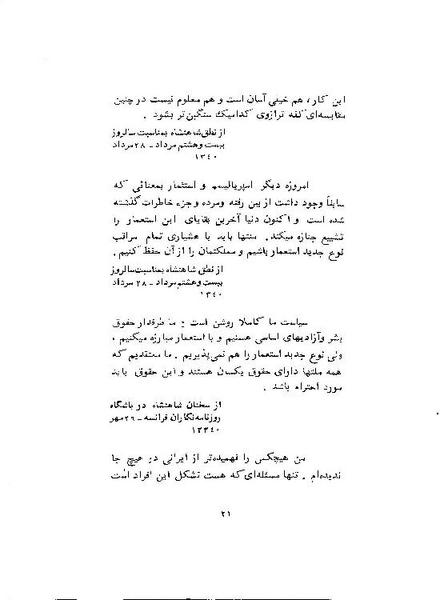 این کار، هم خیلی آسان است و هم معلوم نیست در چنین
مقایسه‌ای کفه ترازوی کدامیک سنگین‌تر بشود .
از نطق شاهنشاه بمناسبت سالروز
بیست وهشتم مرداد - ۲۸ مرداد
۱۳۴۰
امروزه دیگر امپریالیسم و استثمار بمعنائی که
سابقاً وجود داشت از بین رفته ومرده و جزء خاطرات گذشته
شده است و اکنون دنیا آخرین بقایای این استعمار را
تشییع جنازه میکند. منتها باید با هشیاری تمام مراقب
نوع جدید استعمار باشیم و مملکتمان را از آن حفظ کنیم .
از نطق شاهنشاه بمناسبت سالروز
بیست وهشتم مرداد - ۲۸ مرداد
۱۳۴۰
سیاست ما کاملا روشن است : ما طرفدار حقوق
بشر وآزادیهای اساسی هستیم و با استعمار مبارزه میکنیم ،
ولی نوع جدید استعمار را هم نمی‌پذیریم . ما معتقدیم که
همه ملتها دارای حقوق یکسان هستند و این حقوق باید
مورد احترام باشد .
از سخنان شاهنشاه در باشگاه
روزنامه‌نگاران فرانسه - ۲۹ مهر
من هیچکس را فهمیده‌تر از ایرانی در هیچ جا
ندیده‌ام . تنها مسئله‌ای که هست تشکل این افراد است
۲۱